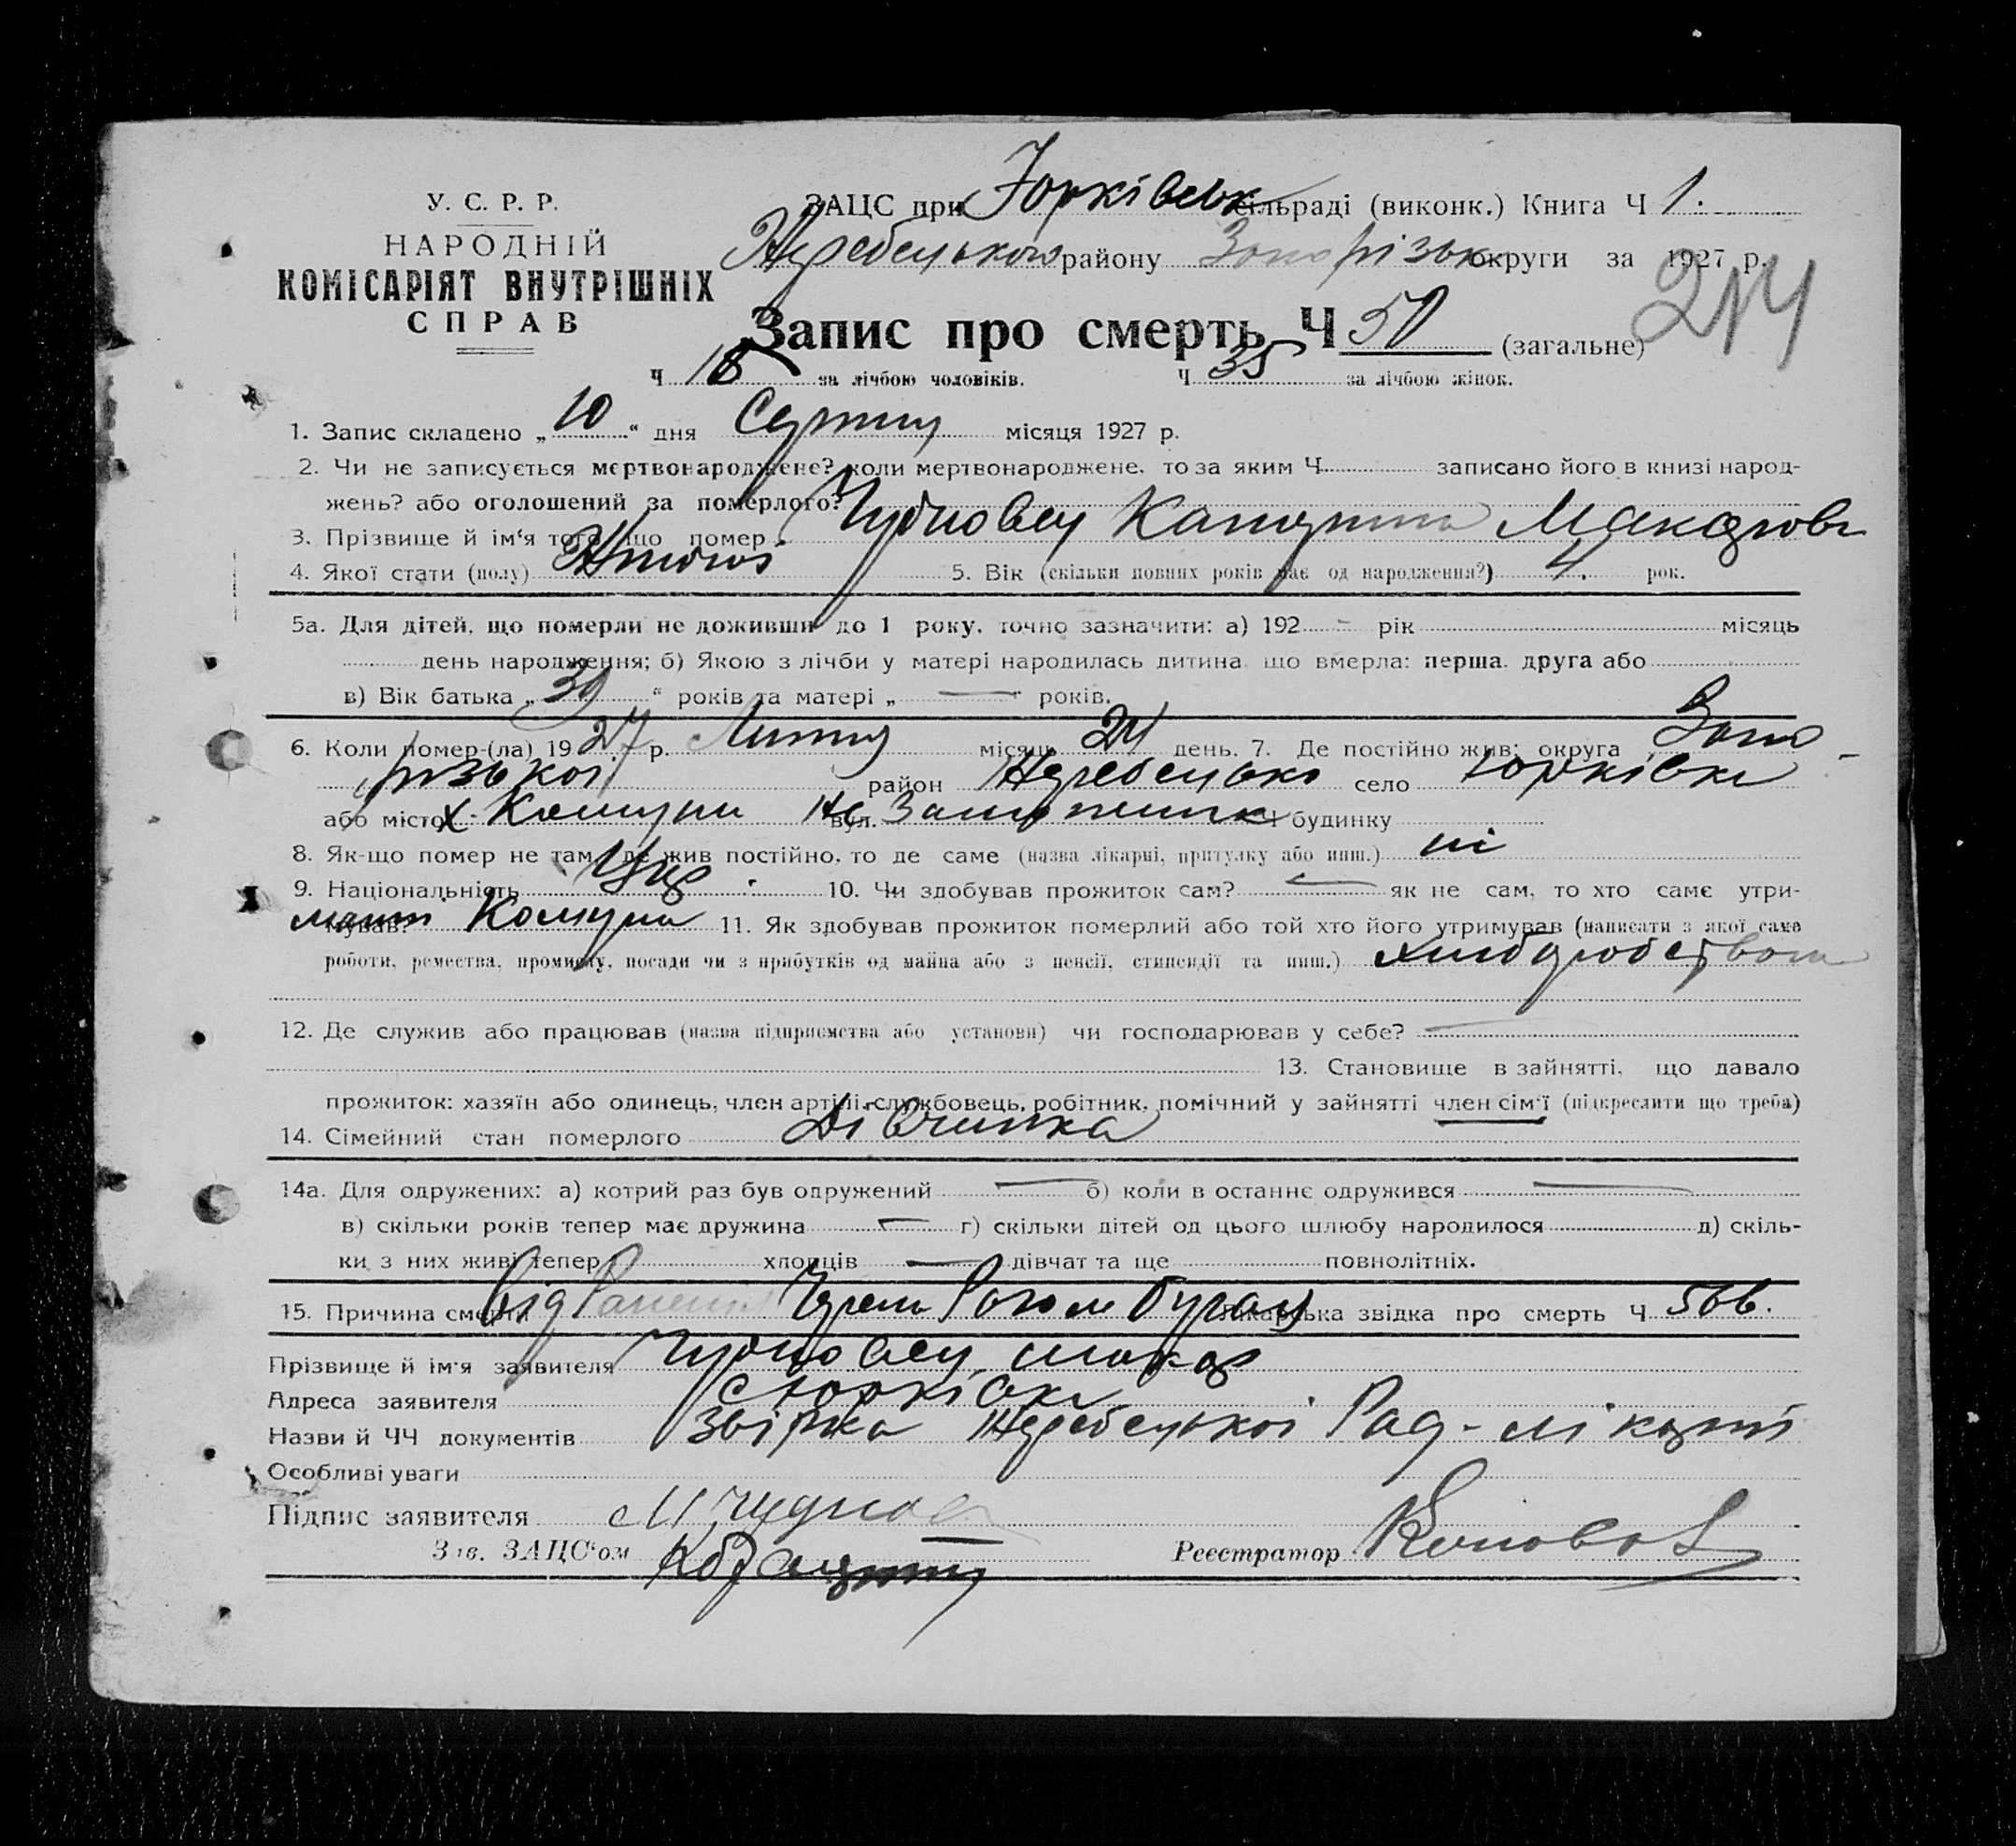 У. С. Р. Р.
НАРОДНІЙ
КОМІСАРІЯТ ВНУТРІШНІХ
СПРАВ
ЗАЦС при Юрківськ сільраді (виконк.) Книга Ч 1.
Жеребецького району Запорізьк округи за 1927 р.
214
Запис про смерть Ч 50 (загальне)
Ч 15 за лічбою чоловіків. Ч 35 за лічбою жінок.
1. Запис складено „ 10 “ дня Серпня місяця 1927 р.
2. Чи не записується мертвонароджене? коли мертвонароджене, то за яким Ч записано його в книзі народ-
жень? або оголошений за померлого?
3. Прізвище й ім‘я того, що помер Чудновец Катерина Макарівн
4. Якої стати (полу) Жіночої 5. Вік (скільки повних років має од народження?) 4. рок.
5а. Для дітей, що померли не доживши до 1 року, точно зазначити: а) 192 - рік місяць
день народження; б) Якою з лічби у матері народилась дитина, що вмерла: перша, друга або
в) Вік батька „ 39 “ років та матері „ — “ років.
6. Коли помер-(ла) 1927 р. Липня місяць 24 день. 7. Де постійно жив: округа Запо-
різької район Жеребецько село Юрківка
або місто х. Комуни Незаможник вул. Ч будинку
8. Як-що помер не там, де жив постійно, то де саме (назва лікарні, притулку або инш.) ні
9. Національність Укр. 10. Чи здобував прожиток сам? — як не сам, то хто саме утри-
мував? Комуна 11. Як здобував прожиток померлий або той хто його утримував (написати з якої саме
роботи, ремества, промислу, посади чи з прибутків од майна або з пенсії, стипендії та инш.) хліборобством
12. Де служив або працював (назва підприємства або установи) чи господарював у себе? —
13. Становище в зайнятті, що давало
прожиток: хазяїн або одинець, член артілі, службовець, робітник, помічний у зайнятті член сім‘ї (підкреслити що треба)
14. Сімейний стан померлого Дівчинка
14а. Для одружених: а) котрий раз був одружений — б) коли в останнє одружився —
в) скільки років тепер має дружина — г) скільки дітей од цього шлюбу народилося д) скіль-
ки з них живі тепер хлопців — дівчат та ще повнолітніх.
15. Причина смерти від Ранения Рогом бугая Лікарська звідка про смерть Ч 566.
Прізвище й ім‘я заявителя Чудновец Макар
Адреса заявителя с Юрківка
Назви й ЧЧ документів Звістка Жеребецької Рад-лікарні
Особливі уваги
Підпис заявителя М Чуднов
Зав. ЗАЦС‘ом
Реєстратор